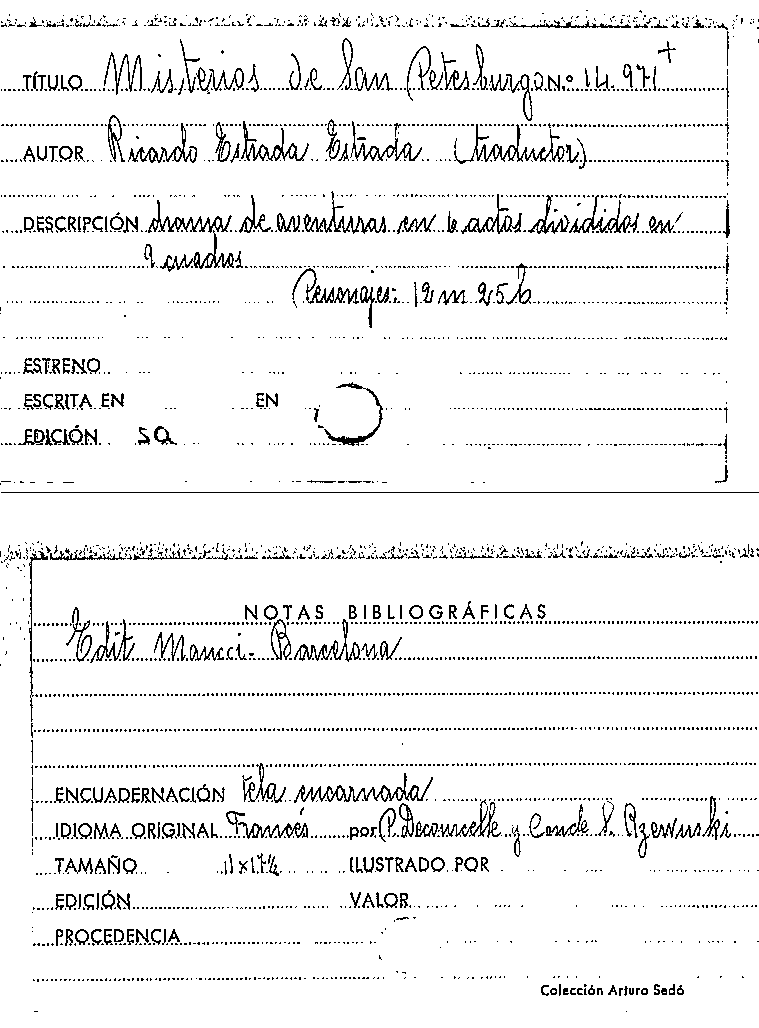 TÍTULO Misterios de San Petesburgo N.º 14.971+
AUTOR Ricardo Estrada Estrada (traductor)
DESCRIPCIÓN drama de aventuras en 6 actos divididos en
9 cuadros
Personajes: 12 m 25 h
ESTRENO
ESCRITA EN EN
EDICIÓN sa
NOTAS BIBLIOGRÁFICAS
Edit Maucci - Barcelona
ENCUADERNACIÓN tela encarnada
IDIOMA ORIGINAL Francés por P. Decourcelle y Conde S. Rzewuski
TAMAÑO 11x17½ ILUSTRADO POR
EDICIÓN VALOR
PROCEDENCIA
Colección Arturo Sedó